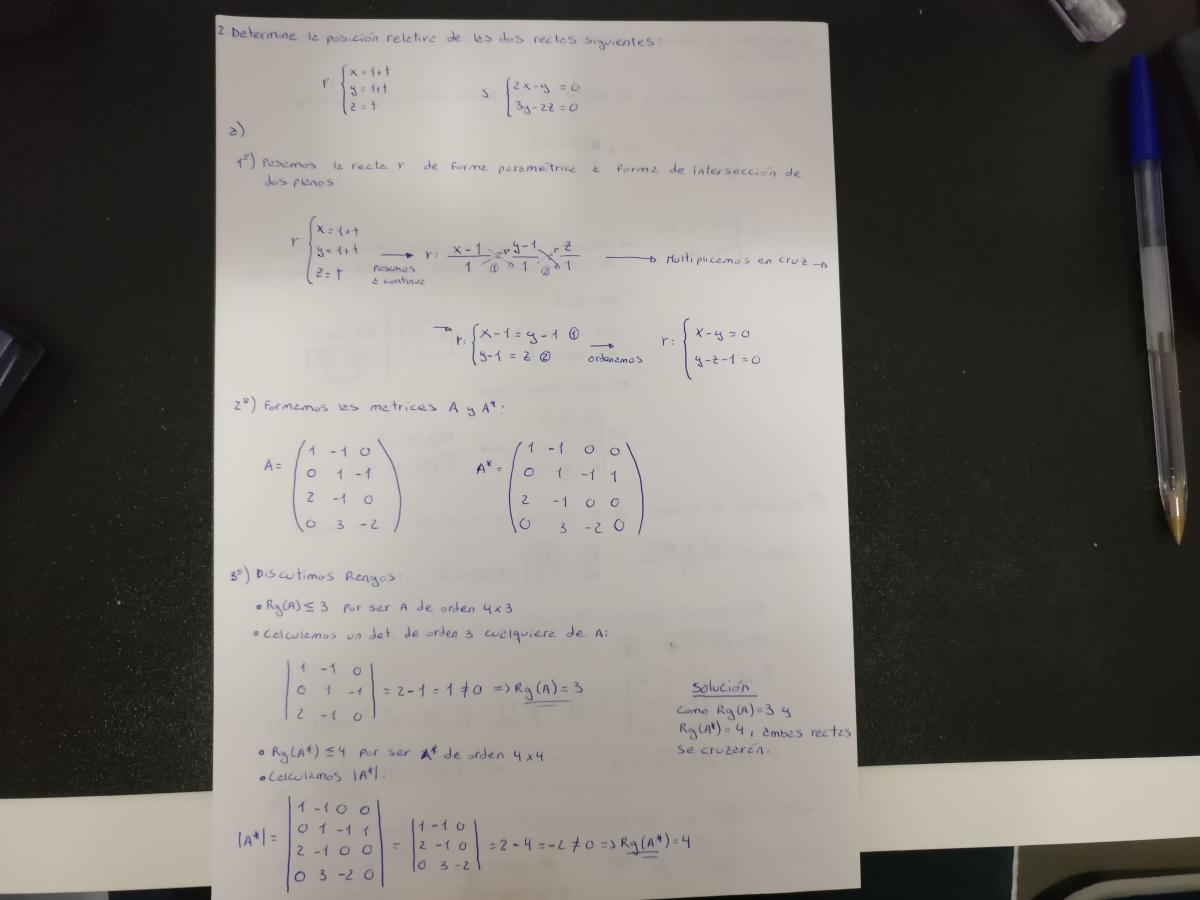 2. Determine la posición relativa de las dos rectas siguientes:
r: { x = 1+t
y = 1+t
z = t
s: { 2x-y = 0
3y-2z = 0
a)
1º) Pasamos la recta r de forma paramétrica a forma de intersección de
dos planos:
r: { x = 1+t
y = 1+t
z = t
Pasamos
a continua
r: x-1/1 = y-1/1 = z/1
① ②
Multiplicamos en cruz →
→ r: { x-1 = y-1 ①
y-1 = z ②
ordenamos
r: { x-y = 0
y-z-1 = 0
2º) Formamos las matrices A y A*:
A = ( 1 -1 0
0 1 -1
2 -1 0
0 3 -2 )
A* = ( 1 -1 0 0
0 1 -1 1
2 -1 0 0
0 3 -2 0 )
3º) Discutimos Rangos:
• Rg(A) ≤ 3 por ser A de orden 4x3
• Calculamos un det. de orden 3 cualquiera de A:
| 1 -1 0
0 1 -1
2 -1 0 | = 2-1 = 1 ≠ 0 => Rg(A) = 3
• Rg(A*) ≤ 4 por ser A* de orden 4x4.
• Calculamos |A*|:
|A*| = | 1 -1 0 0
0 1 -1 1
2 -1 0 0
0 3 -2 0 | = | 1 -1 0
2 -1 0
0 3 -2 | = 2-4 = -2 ≠ 0 => Rg(A*) = 4
Solución
Como Rg(A)=3 y
Rg(A*)=4, ambas rectas
se cruzarán.